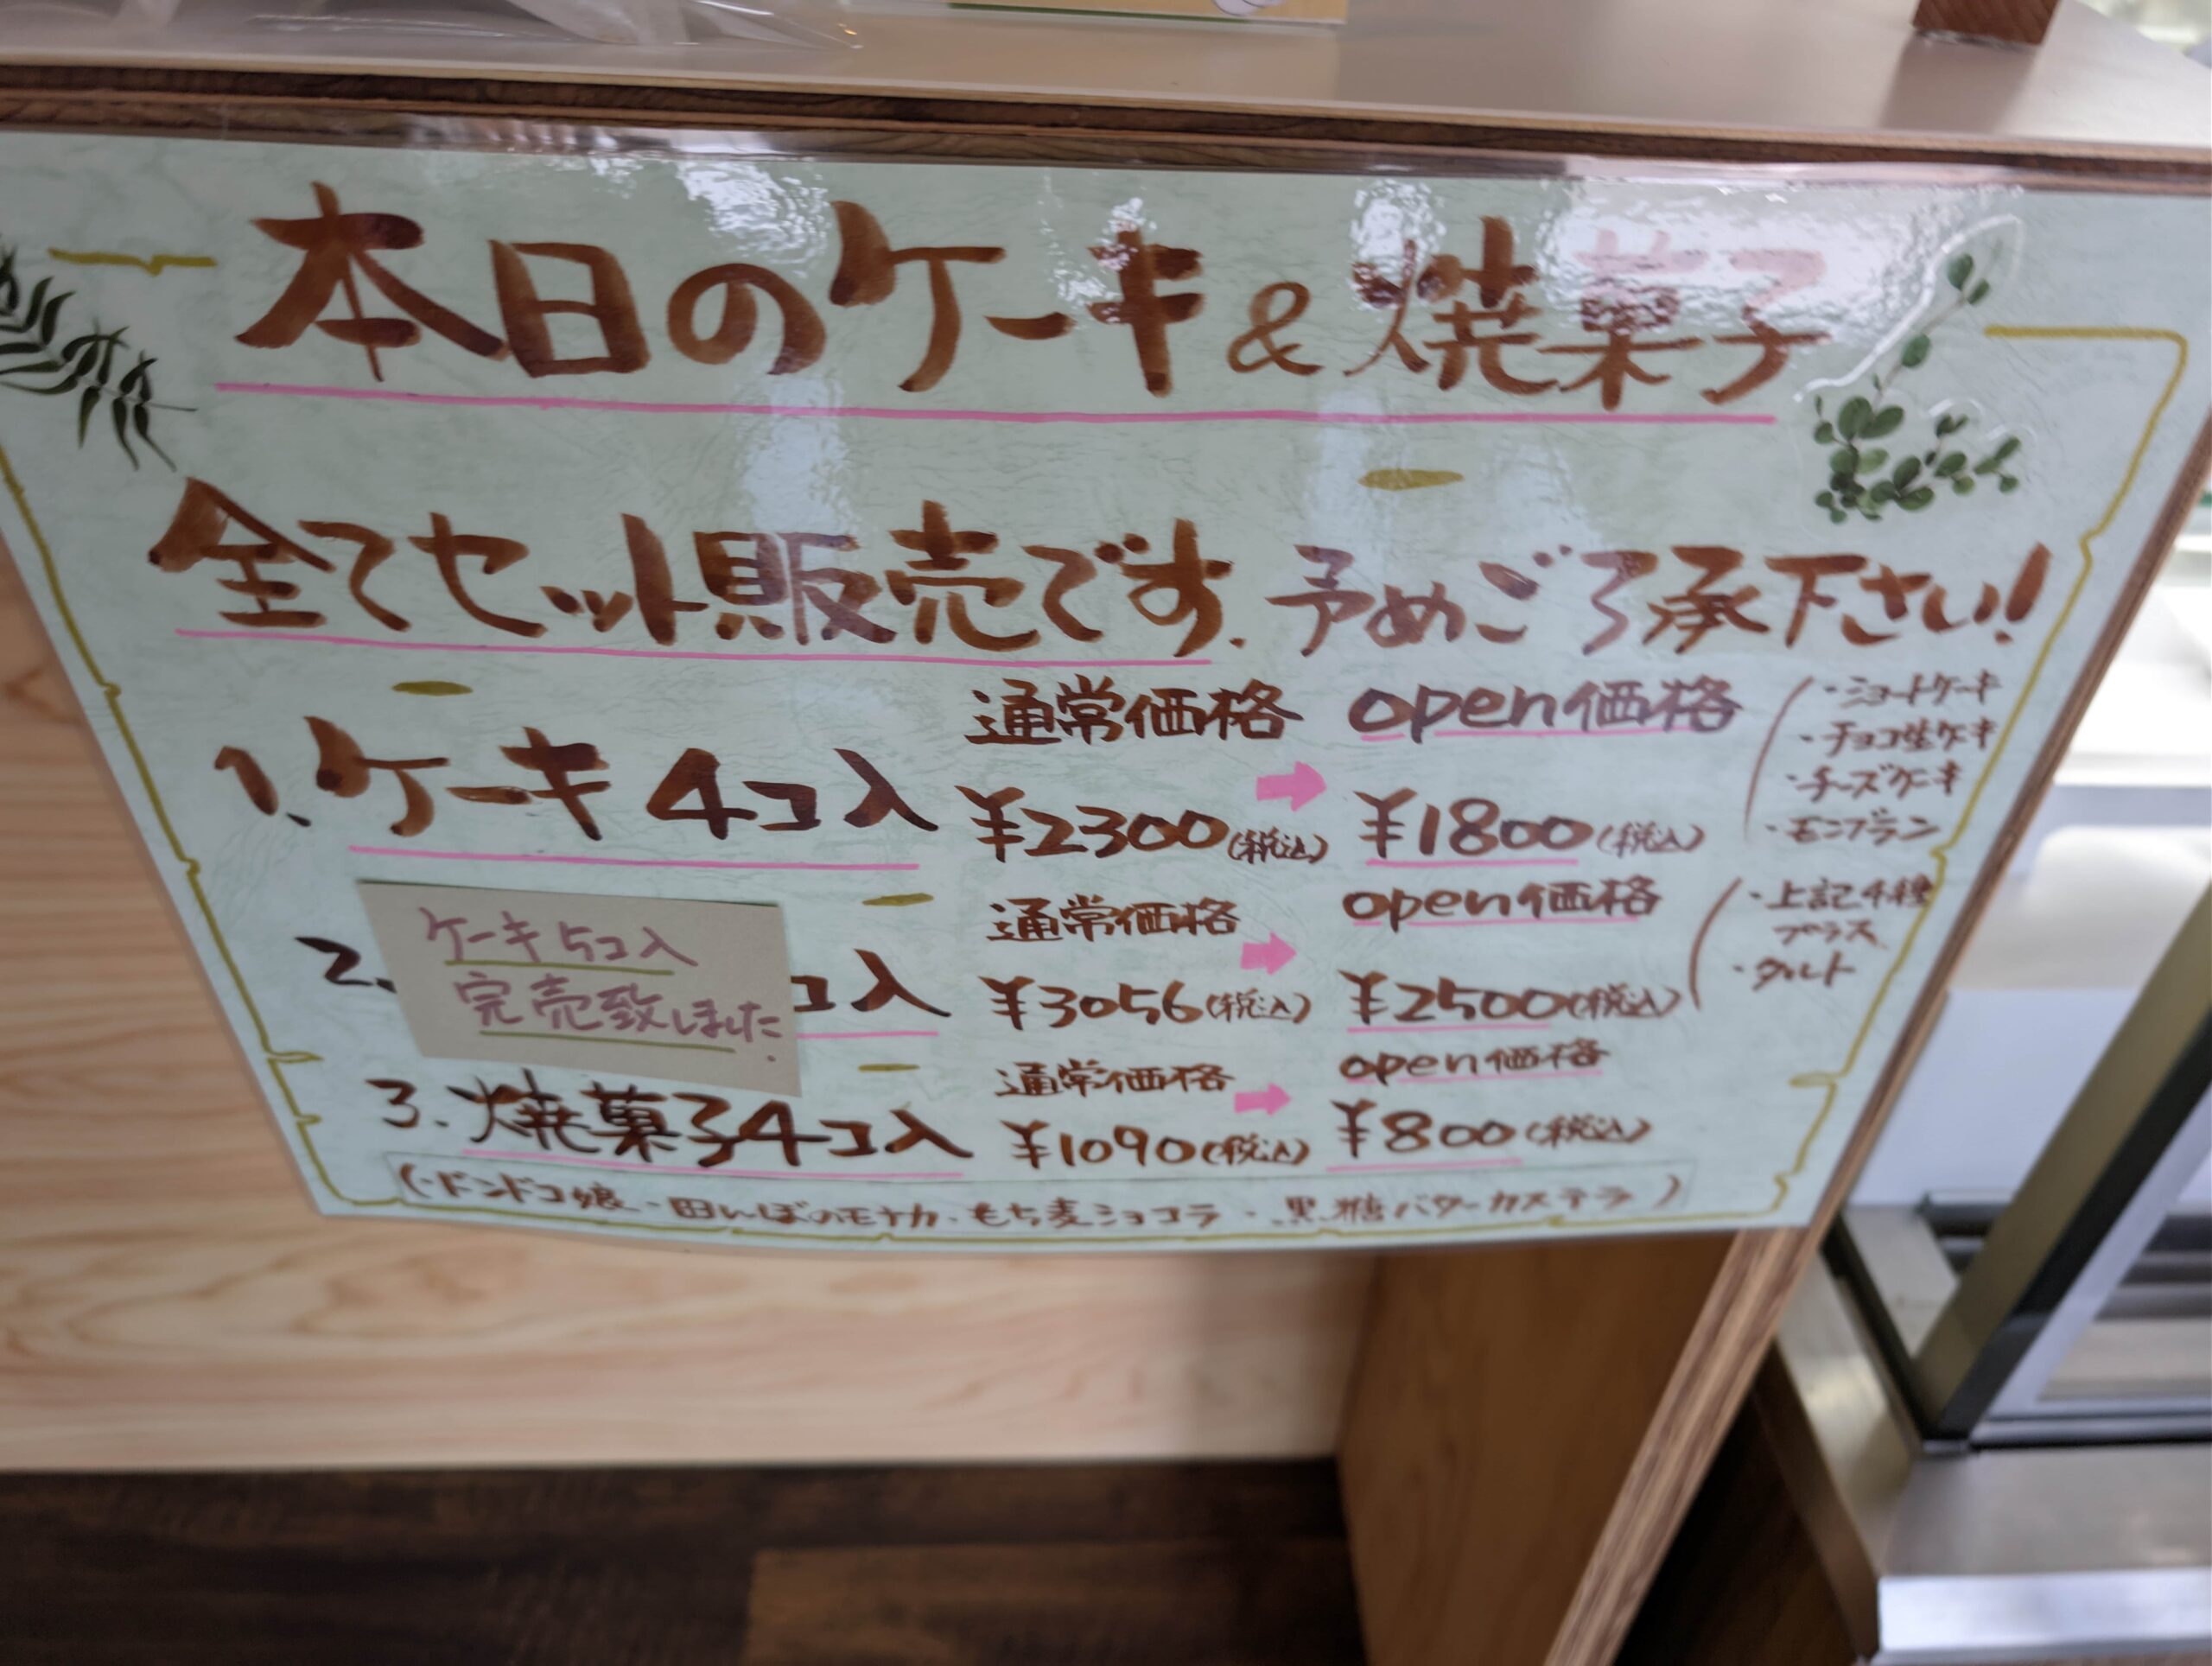 本日のケーキ&焼菓子
全てセット販売です.予めご了承下さい!
通常価格 open価格
1.ケーキ4コ入 ¥2300(税込) ➡ ¥1800(税込)
・ショートケーキ
・チョコ生ケーキ
・チーズケーキ
・モンブラン
通常価格 open価格
2. コ入 ¥3056(税込) ➡ ¥2500(税込)
・上記4種
プラス
・タルト
ケーキ5コ入
完売致しました.
通常価格 open価格
3.焼菓子4コ入 ¥1090(税込) ➡ ¥800(税込)
(・ドンドコ娘・田んぼのモナカ・もち麦ショコラ・黒糖バターカステラ)